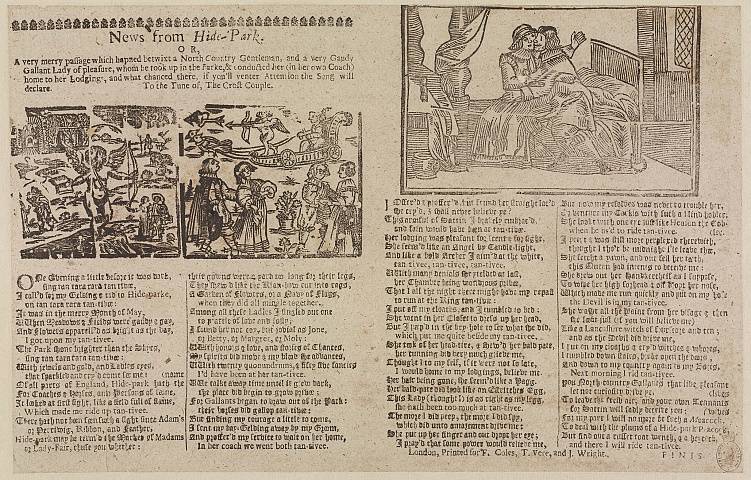 News from Hide-Park.
OR,
A very merry passage which hapned betwixt a North Country Gentleman, and a very Gaudy
Gallant Lady of pleasure, whom he took up in the Parke, & conducted her (in her own Coach)
home to her Lodgings, and what chanced there, if you'll venter Attention the Song will
declare.
To the Tune of, The Crost Couple.
ONe Evening a little before it was dark,
sing tan tara rara tan tivee,
I call'd for my Gelding & rid to Hide-parke,
on tan tara rara tan-tivee:
It was in the merry Month of May,
When Meadows & Fields were gaudy & gay,
And Flowers apparell'd as bright as the day,
I got upon my tan-tivee.
The Park shone brighter than the Skyes,
sing tan tara rara tan-tivee:
With jewels and gold, and Ladies eyes,
that sparkled and cry'd come see me:
Of all parts of England, Hide-park hath the name
For Coaches & Horses, and Persons of fame,
It looked at first sight, like a field full of flame,
Which made me ride up tan-tivee.
There hath not been such a sight since Adam's
for Perriwig, Ribbon, and Feather,
Hide-park may be term'd the Market of Madams
or Lady-Fair, chuse you whether:
their gowns were a yard too long for their legs,
They shew'd like the Rain-bow cut into rags,
A Garden of Flowers, or a Navy of Flags,
when they did all mingle together.
Among all these Ladies I singled out one
to prattle of love and folly;
I found her not coy, but jovial as Jone,
or Betty, or Margret, or Moly:
With honours & love, and stories of Chances,
My spirits did move & my blood she advances,
With twenty quonundrums, & fifty five fancies
I'd have been at her tan-tivee.
We talkt away time until it grew dark,
the place did begin to grow privee;
For Gallants began to draw out of the Park:
their horses did gallop tan-tivee:
But finding my courage a little to come,
I sent my bay-Gelding away by my Groom,
And proffer'd my service to wait on her home,
In her coach we went both tan-tivee.
I offer'd & proffer'd, but found her straight lac'd
She cry'd, I shall never believe ye:
This armful of Sattin I bravely embrac'd,
and fain would have been at tan-tivee:
Her lodging was pleasant for scent & for sight,
She seem'd like an Angel by Candle-light,
And like a bold Archer I aim'd at the white,
tan tivee, tan-tivee, tan-tivee.
With many denials she yielded at last,
her Chamber being wondrous privee,
That I all the night there might have my repast
to run at the King tan-tivee:
I put off my cloaths, and I tumbled to bed.
She went in her Closet to dress up her head,
But I peep'd in the key-hole to see what she did,
which put me quite beside my tan-tivee.
She took off her head-tire, & shew'd her bald pate,
her cunning did very much grieve me,
Thought I to my self, if it were not so late,
I would home to my lodgings, believe me:
Her hair being gone, she seem'd like a Hagg,
Her bald-pate did look like an Estritches Egg,
This Lady (thought I) is as right as my legg,
she hath been too much at tan-tivee.
The more I did peep, the more I did spy,
which did unto amazement drive me:
She put up her finger and out drops her eye;
I pray'd that some power would relieve me,
But now my resolves was never to trouble her,
Or venture my Carkis with such a blind hobler,
She lookt with one eye just like Hewson the Cobler,
when he us'd to ride tan-tivee.
I peept & was still more perplexed therewith,
thought I, tho't be midnight I'le leave thee,
She fetcht a yawn, and out fell her teeth,
this Quean had intents to deceive me:
She drew out her Handkerchief as I suppose,
To wipe her high forehead & off dropt her nose,
Which made me run quickly and put on my hose
the Devil is in my tan-tivee.
She washt all the Paint from her visage & then
She lookt just (if you will believe me)
Like a Lancashire witch of four score and ten;
and as the Devil did drive me,
I put on my cloaths & cry'd witches & whores,
I tumbled down stairs, brake open the doors,
And down to my country again to my Boors,
Next morning I rid tan-tivee.
You North country Gallants that live pleasant lives,
let not curiosity drive ye,
To leave the fresh air, and your own Tennants wives
for Sattin will sadly deceive you:
For my part I will no more be such a Meacock,
To deal with the plumes of a Hide-park Peacock,
But find out a russet coat wench, & a hay-cock,
and there I will ride tan-tivee.
London, Printed for F. Coles, T. Vere, and J. Wright.
FINIS.